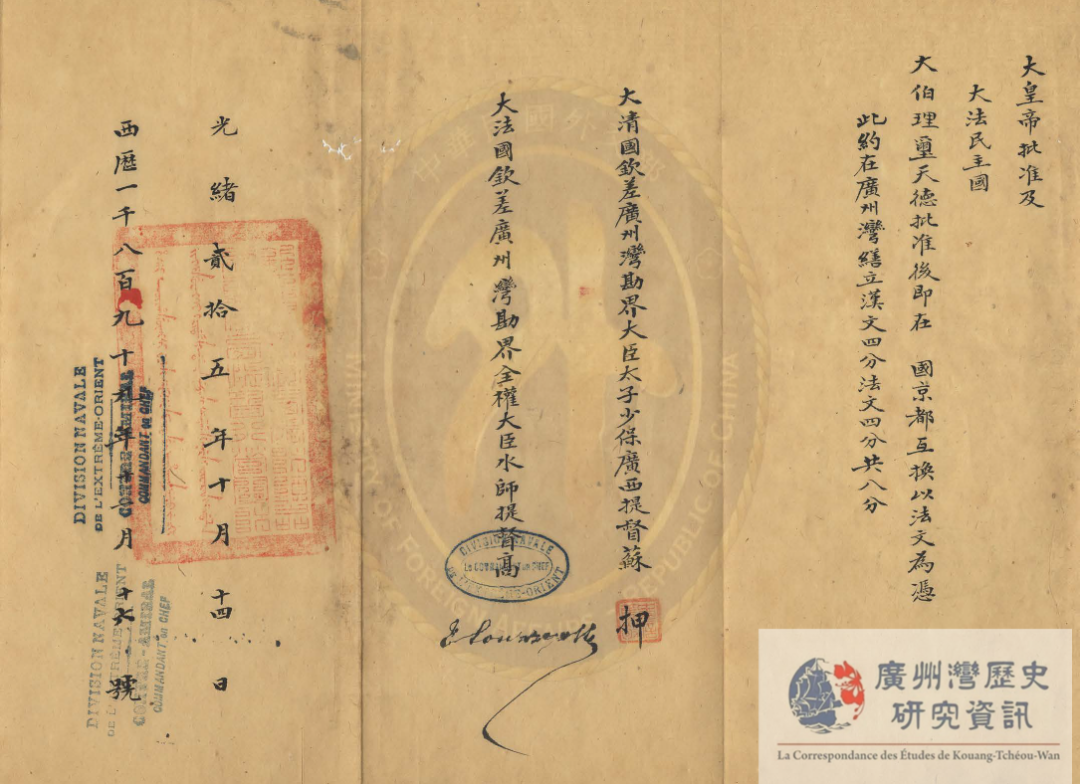 大皇帝批准及
大法民主國
大伯理璽天德批准後即在 國京都互換以法文為憑
此約在廣州灣繕立漢文四分法文四分共八分
大清國欽差廣州灣勘界大臣太子少保廣西提督蘇
押
大法國欽差廣州灣勘界全權大臣水師提督高
DIVISION NAVALE
光緒貳拾五年十月十四日
西歷一千八百九十九年十一月十六號
DIVISION NAVALE
DE L'EXTRÊME-ORIENT
CONTRE-AMIRAL
COMMANDANT en CHEF
DIVISION NAVALE
DE L'EXTRÊME-ORIENT
CONTRE-AMIRAL
COMMANDANT en CHEF
MINISTRY OF FOREIGN AFFAIRS REPUBLIC OF CHINA
廣州灣歷史
研究資訊
La Correspondance des Études de Kouang-Tchéou-Wan